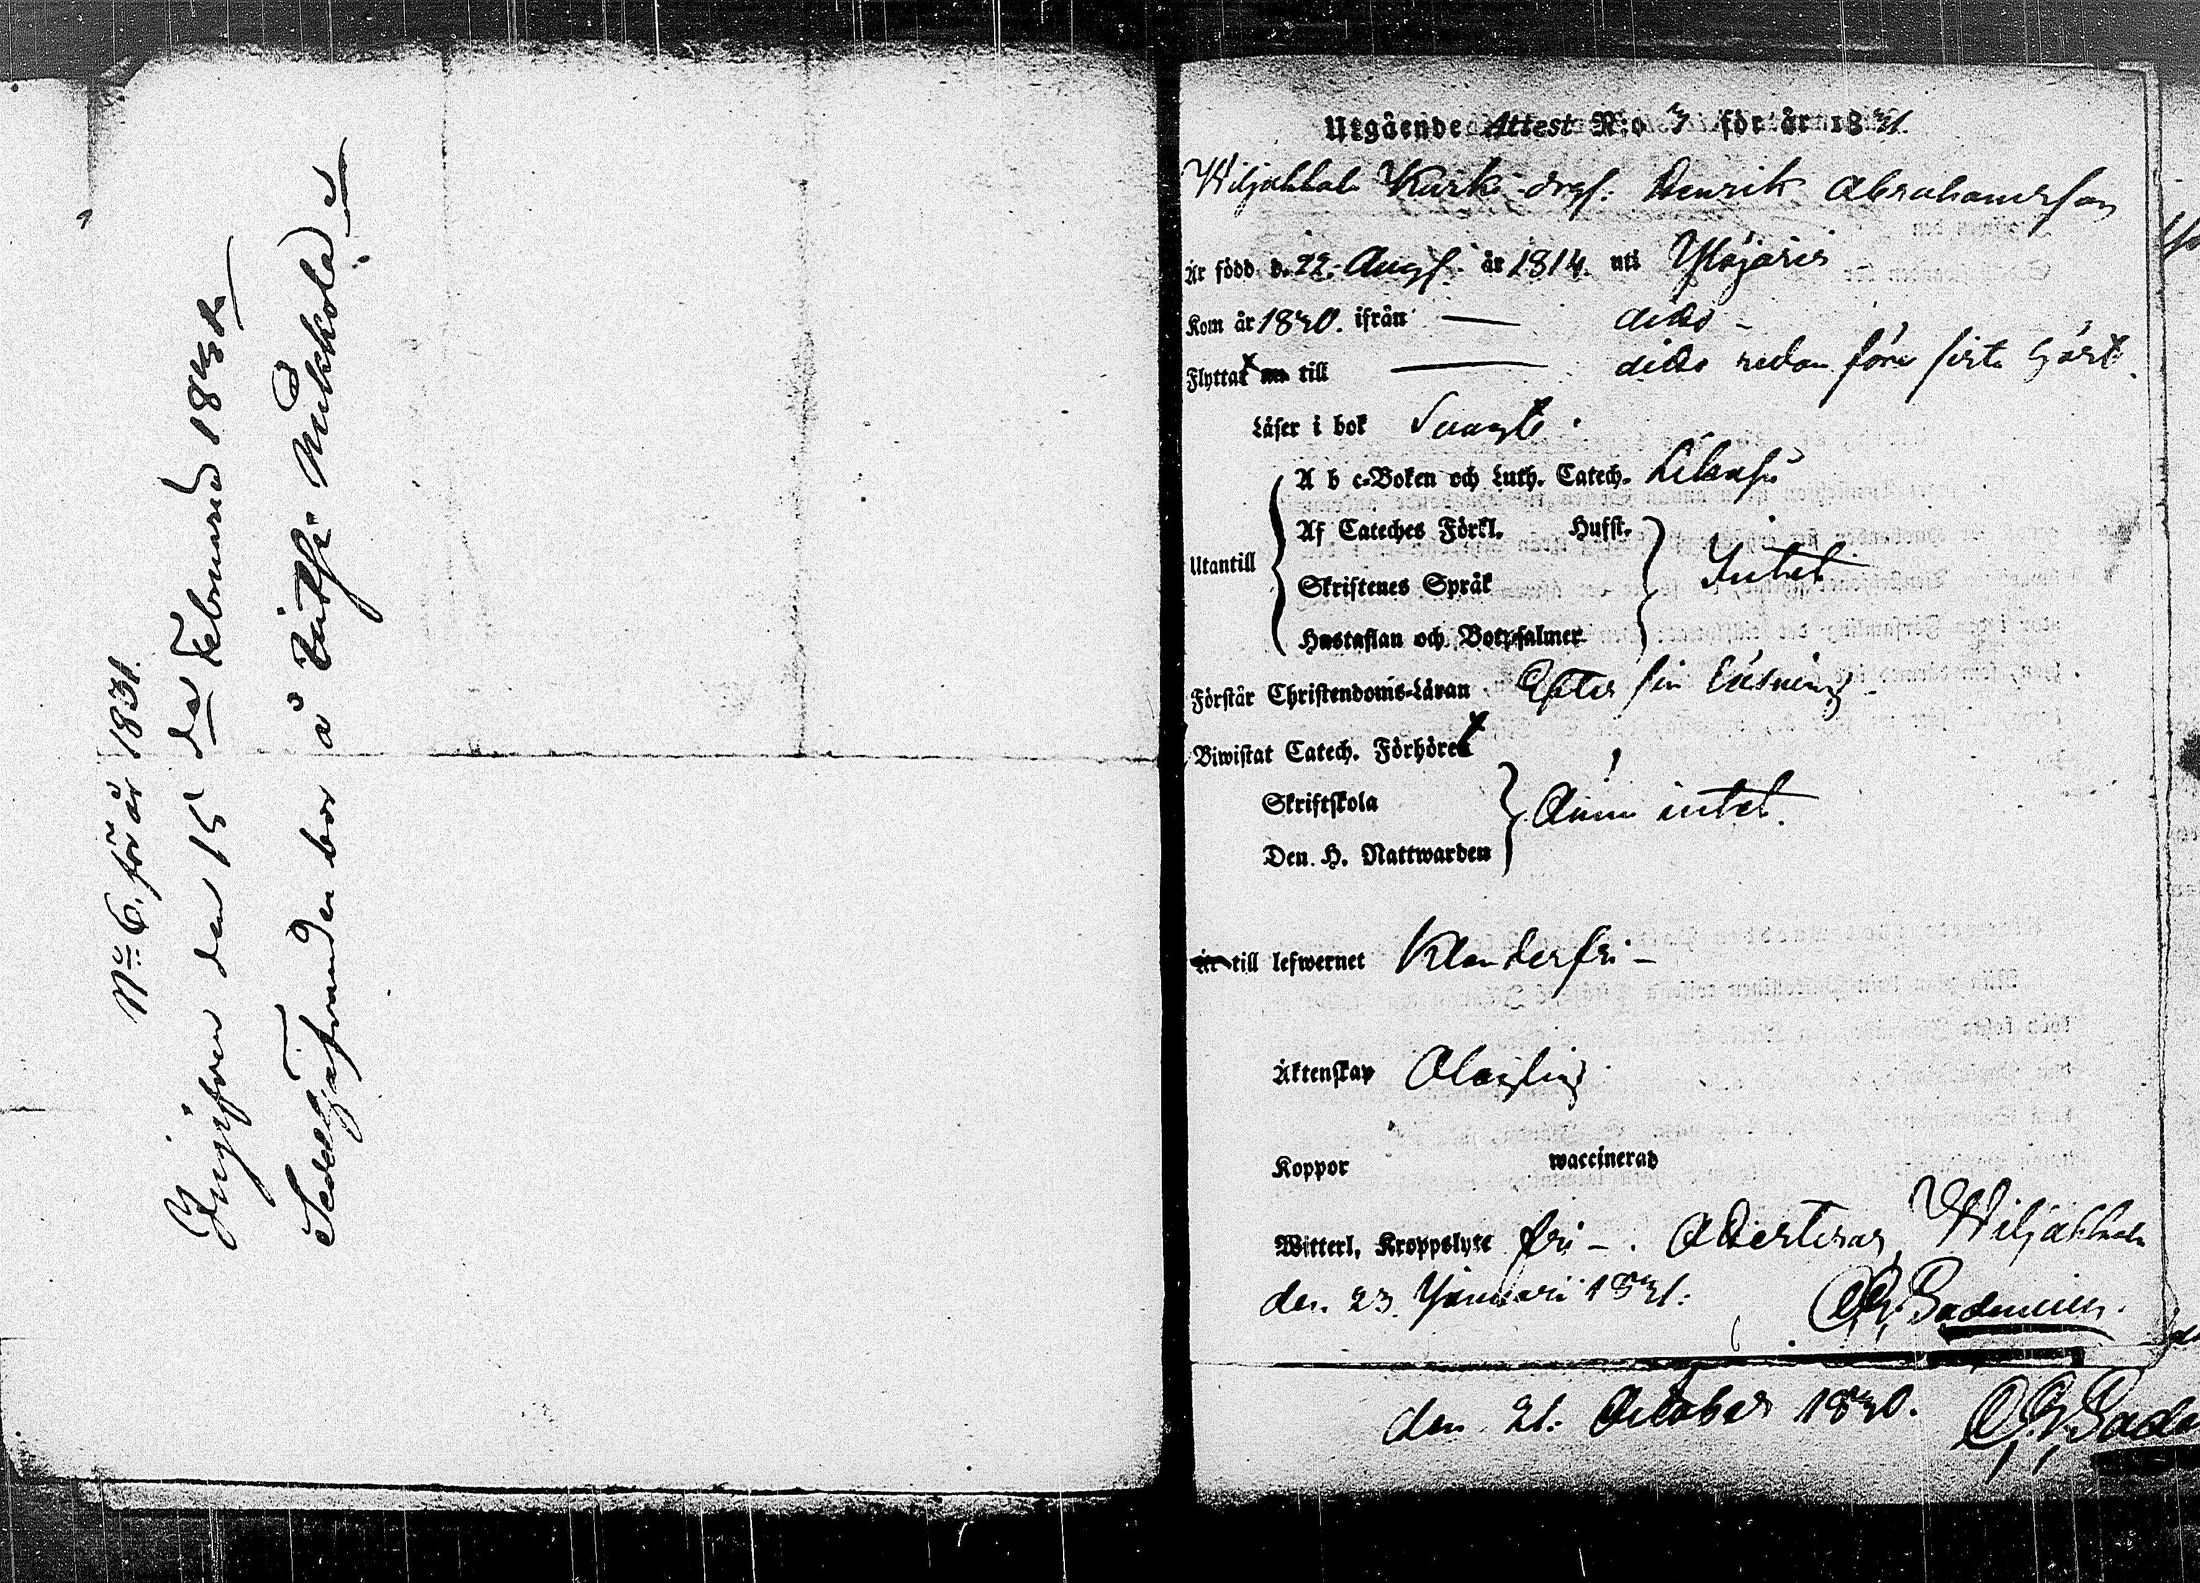 No 6. för år 1831.
Ingifven den 15 de Februarii 1831
Sedelgifvanden bor å Mikkola
Utgående Attest N:o 3 för år 1831.
Wiljakkala Kurki drgs. Henrik Abrahamsson
Är född d. 22. Aug. år 1814. uti Ylöjärvi
Kom år 1830. ifrån — dito –
Flyttat till — dito redan före sista höst.
Läser i bok Svagt.
A b c-Boken och Luth. Catech. Likaså
Af Cateches Förkl. Hufst.
Utantill Skriftenes Språk Intet
Hustaflan och Botpsalmer
Förstår Christendoms-Läran Efter sin läsning –
Biwistat Catech. Förhöret
Skriftskola Ännu intet.
Den H. Nattwarden
Är till lefwernet Klanderfri –
Äktenskap Oläglig
Koppor waccinerad
Witterl. Kroppslyte fri – . Adterteras, Wiljakkala
den 23 Januari 1831.
den 21. October 1830.